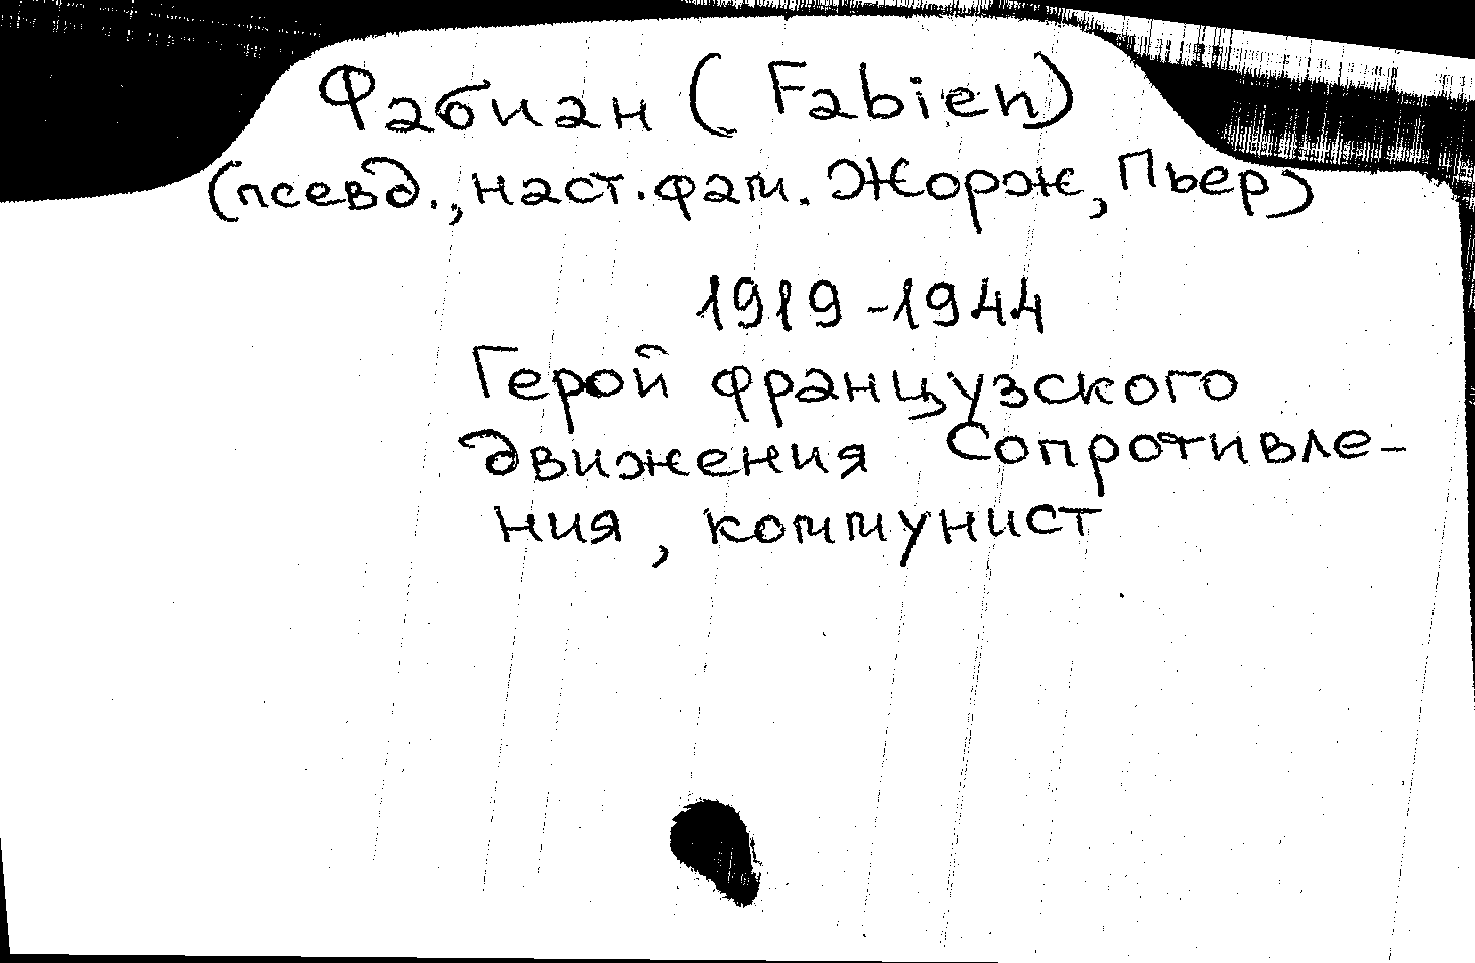 Фабиан (Fabien)
(псевд., наст. фам. Жорж, Пьер)
1919-1944
Герой французского
движения Сопротивле-
ния, коммунист